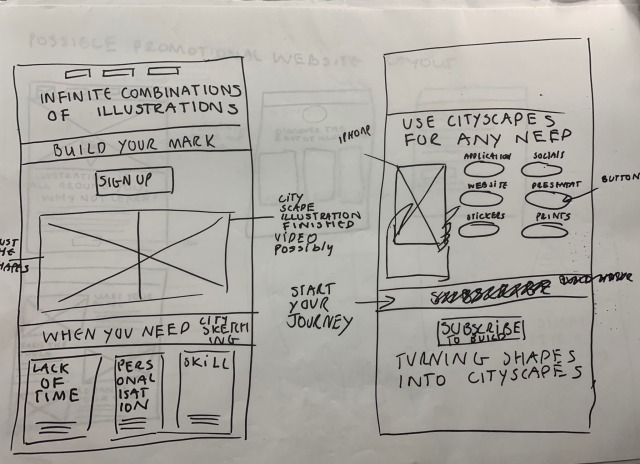 POSSIBLE PROMOTIONAL WEBSITE LAYOUT
INFINITE COMBINATIONS
OF ILLUSTRATIONS
BUILD YOUR MARK
SIGN UP
CITY
SCAPE
ILLUSTRATION
FINISHED
VIDEO
POSSIBLY
WHEN YOU NEED CITY
SKETCH
ING
LACK
OF
TIME
PERS
ONAL
ISAT
ION
SKILL
USE CITYSCAPES
FOR ANY NEED
IPHONE
APPLICATION
SOCIALS
WEBSITE
PRESENTAT
BUTTON
STICKERS
PRINTS
START
YOUR
JOURNEY
SUBSCRIBE
TO BUILD
TURNING SHAPES
INTO CITYSCAPES